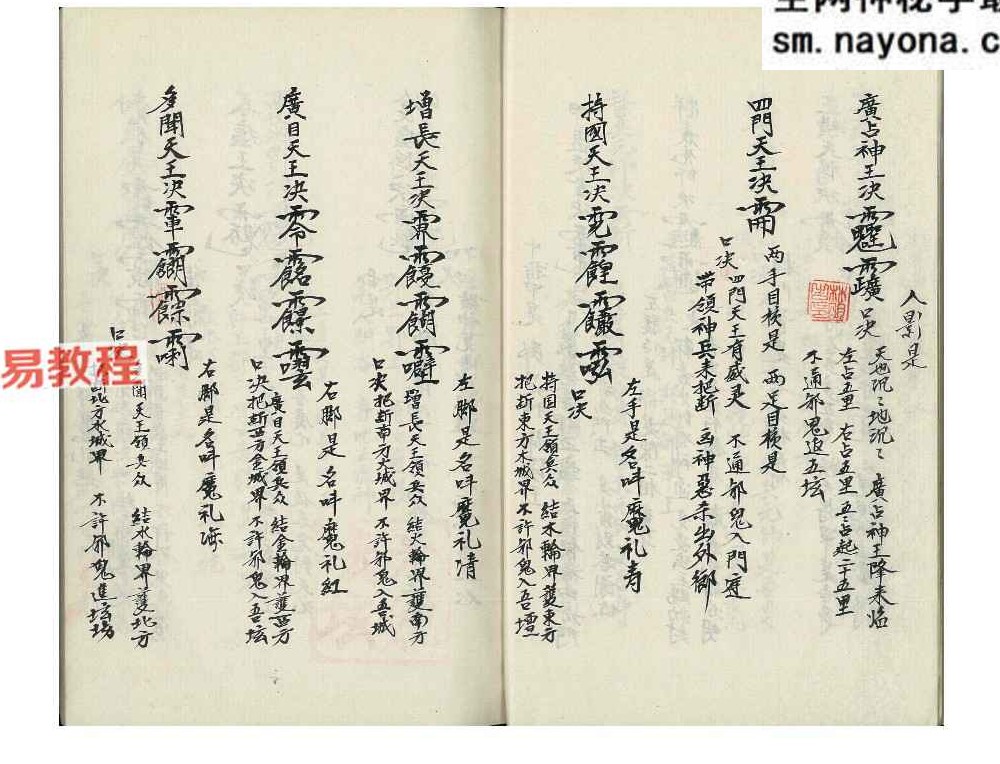 全网神秘学最
sm.nayona.c
易教程
人影是
廣占神王决
口决
廣占神王降来
左占五里 右占五里 五占起二十五里
不通邪鬼返五坛
四門天王决
两手目横是 两足目横是
口决 四門天王有威灵 不通邪鬼入門庭
带領神兵来把断 凶神惡杀出外鄉
持國天王决
口决
左手是名叫魔礼寿
持国天王領兵众 結木輪界護東方
把断東方木城界 不許邪鬼入吾壇
增長天王决
左脚是名叫魔礼清
口决 增長天王領兵众 結火輪界護南方
把断南方火城界 不許邪鬼入吾城
廣目天王决
右脚是名叫魔礼紅
口决 廣目天王領兵众 結金輪界護西方
把断西方金城界 不許邪鬼入吾坛
多聞天王决
右脚是名叫魔礼海
聞天王領兵众 結水輪界護北方
北方水城界 不許邪鬼進坛場